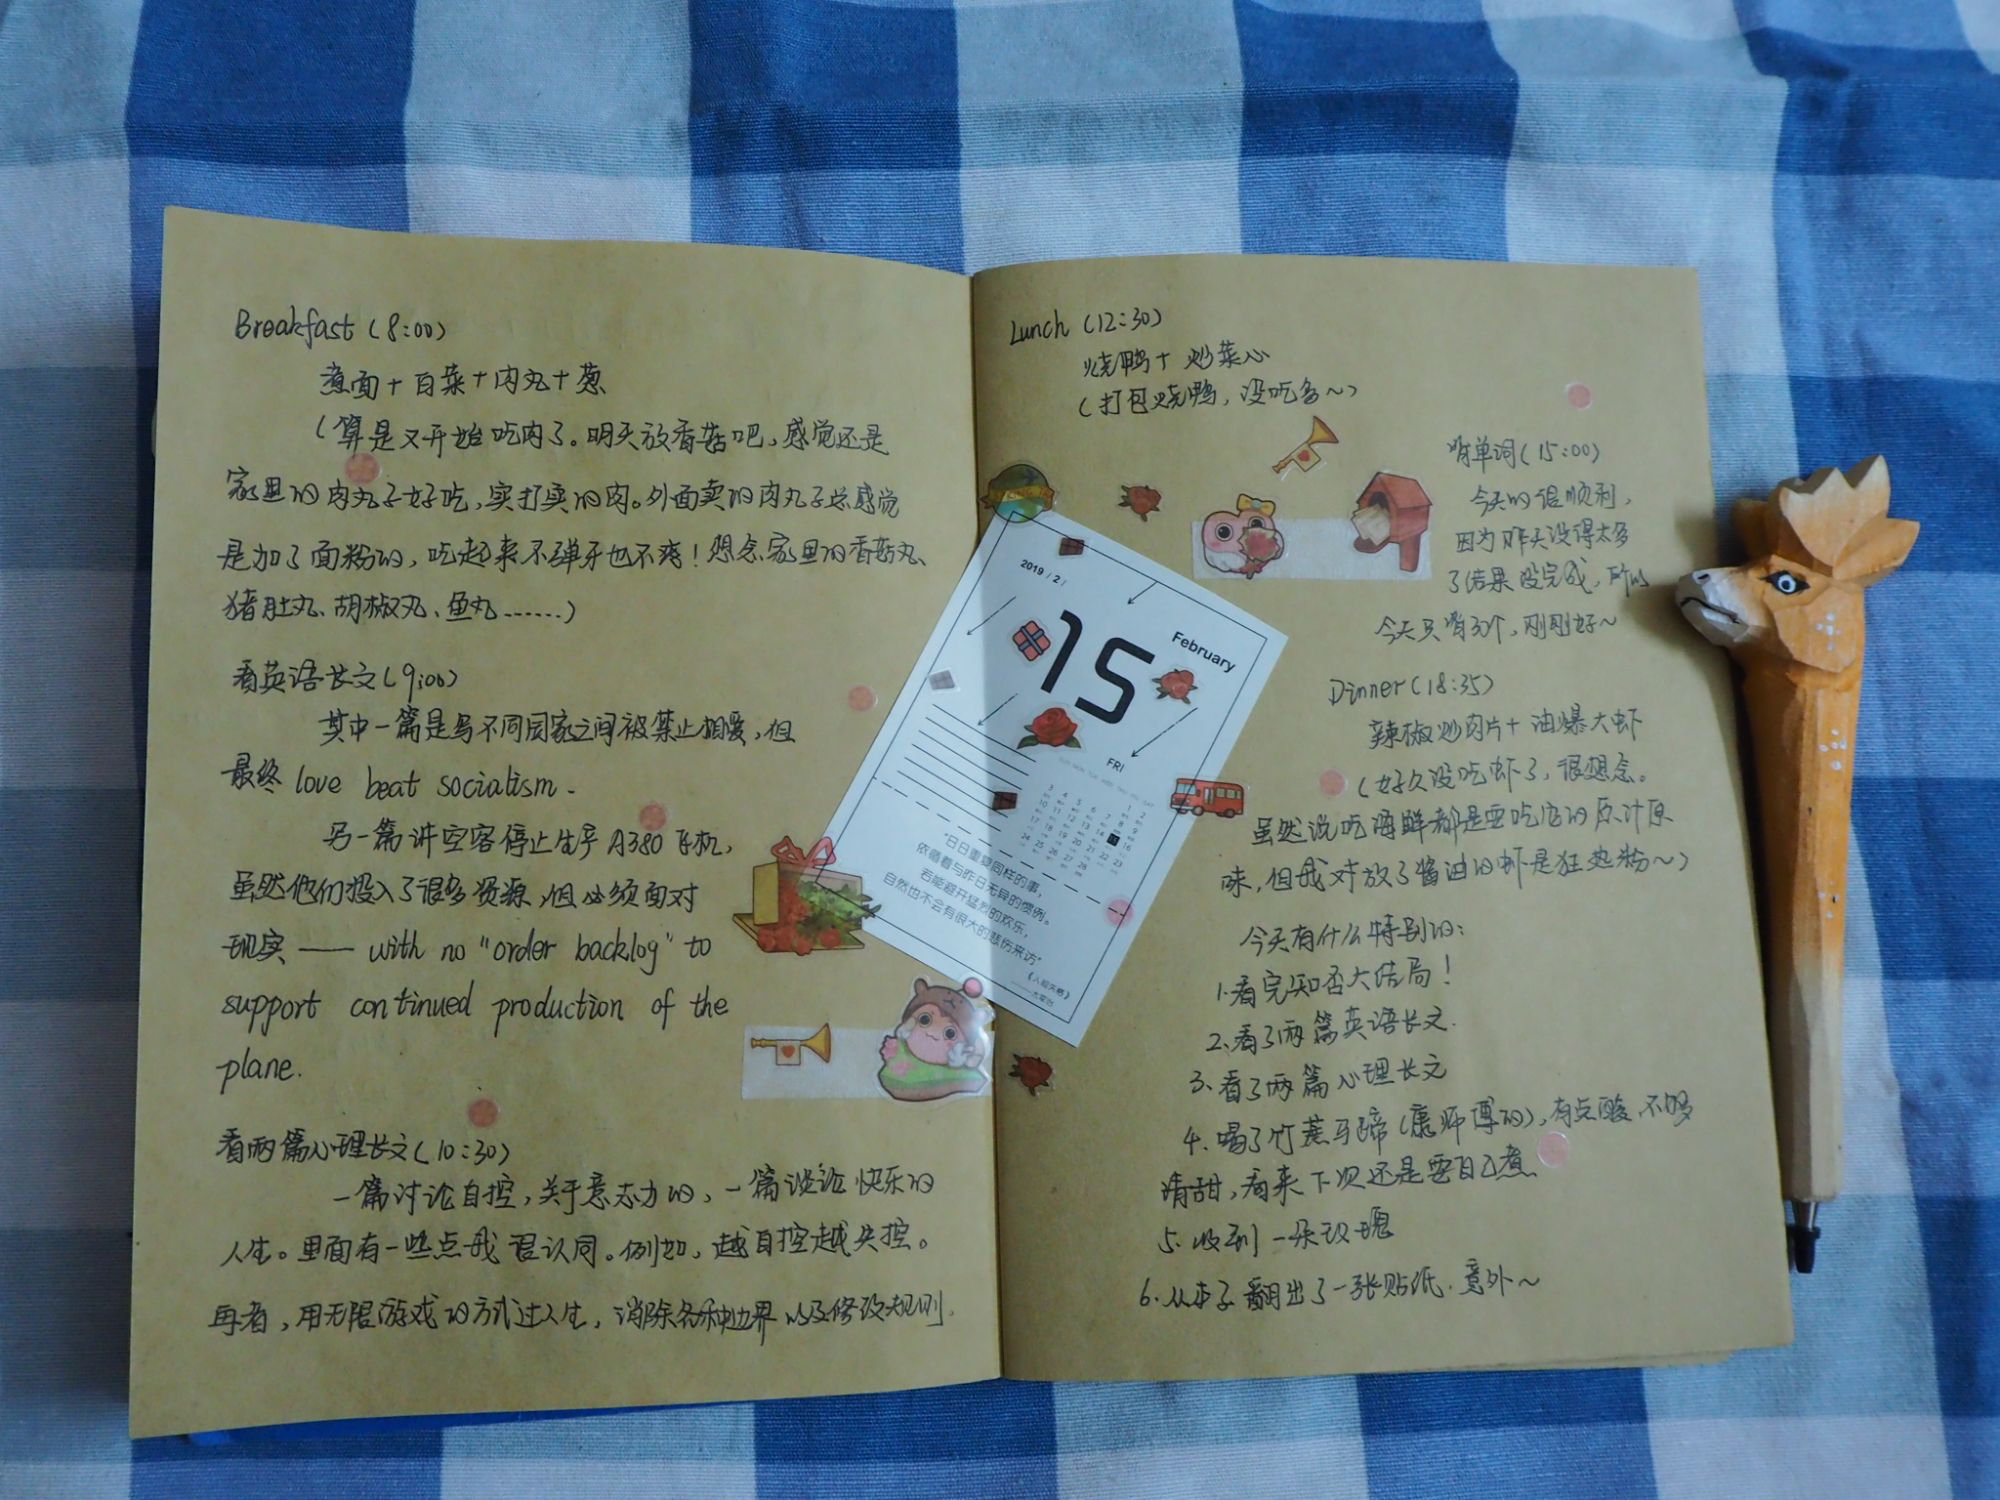 Breakfast (8:00)
煮面+白菜+肉丸+葱
(算是又开始吃肉了。明天放香菇吧,感觉还是
家里的肉丸子好吃,实打实的肉。外面卖的肉丸子总感觉
是加了面粉的,吃起来不弹牙也不爽!想念家里的香菇丸、
猪肚丸、胡椒丸、鱼丸……)
看英语长文(9:00)
其中一篇是写不同国家之间被禁止相爱,但
最终 love beat socialism.
另一篇讲空客停止生产A380飞机,
虽然他们投入了很多资源,但必须面对
现实——with no "order backlog" to
support continued production of the
plane.
看两篇心理长文(10:30)
一篇讨论自控,关于意志力的,一篇谈论快乐的
人生。里面有一些点我很认同。例如,越自控越失控。
再者,用无限游戏的方式过人生,消除各种边界以及修改规则.
2019 / 2 /
15
February
FRI
SUN MON TUE WED THU FRI SAT
1 2
3 4 5 6 7 8 9
10 11 12 13 14 15 16
17 18 19 20 21 22 23
24 25 26 27 28
"日日重复同样的事,
依循着与昨日无异的惯例。
若能避开猛烈的欢乐,
自然也不会有很大的悲伤来访"
《人间失格》
——太宰治
Lunch (12:30)
烧鸭+炒菜心
(打包烧鸭,没吃多~)
背单词(15:00)
今天的很顺利,
因为昨天设得太多
了结果没完成,所以
今天只背30个,刚刚好~
Dinner(18:35)
辣椒炒肉片+油爆大虾
(好久没吃虾了,很想念。
虽然说吃海鲜都是要吃它的原汁原
味,但我对放了酱油的虾是狂热粉~)
今天有什么特别的:
1.看完知否大结局!
2.看了两篇英语长文.
3.看了两篇心理长文
4.喝了竹蔗马蹄(康师傅的),有点酸,不够
清甜,看来下次还是要自己煮.
5.收到一朵玫瑰
6.从本子翻出了一张贴纸.意外~